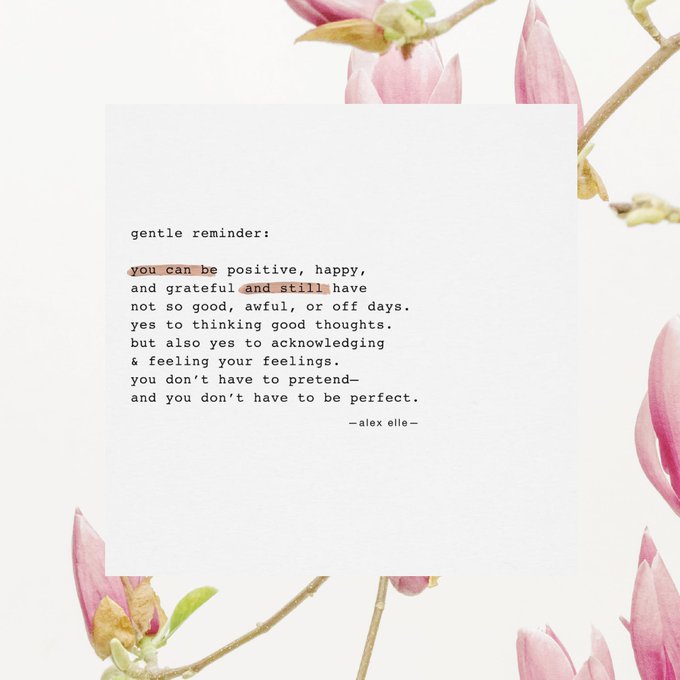 gentle reminder:
you can be positive, happy,
and grateful and still have
not so good, awful, or off days.
yes to thinking good thoughts.
but also yes to acknowledging
& feeling your feelings.
you don’t have to pretend—
and you don’t have to be perfect.
—alex elle—